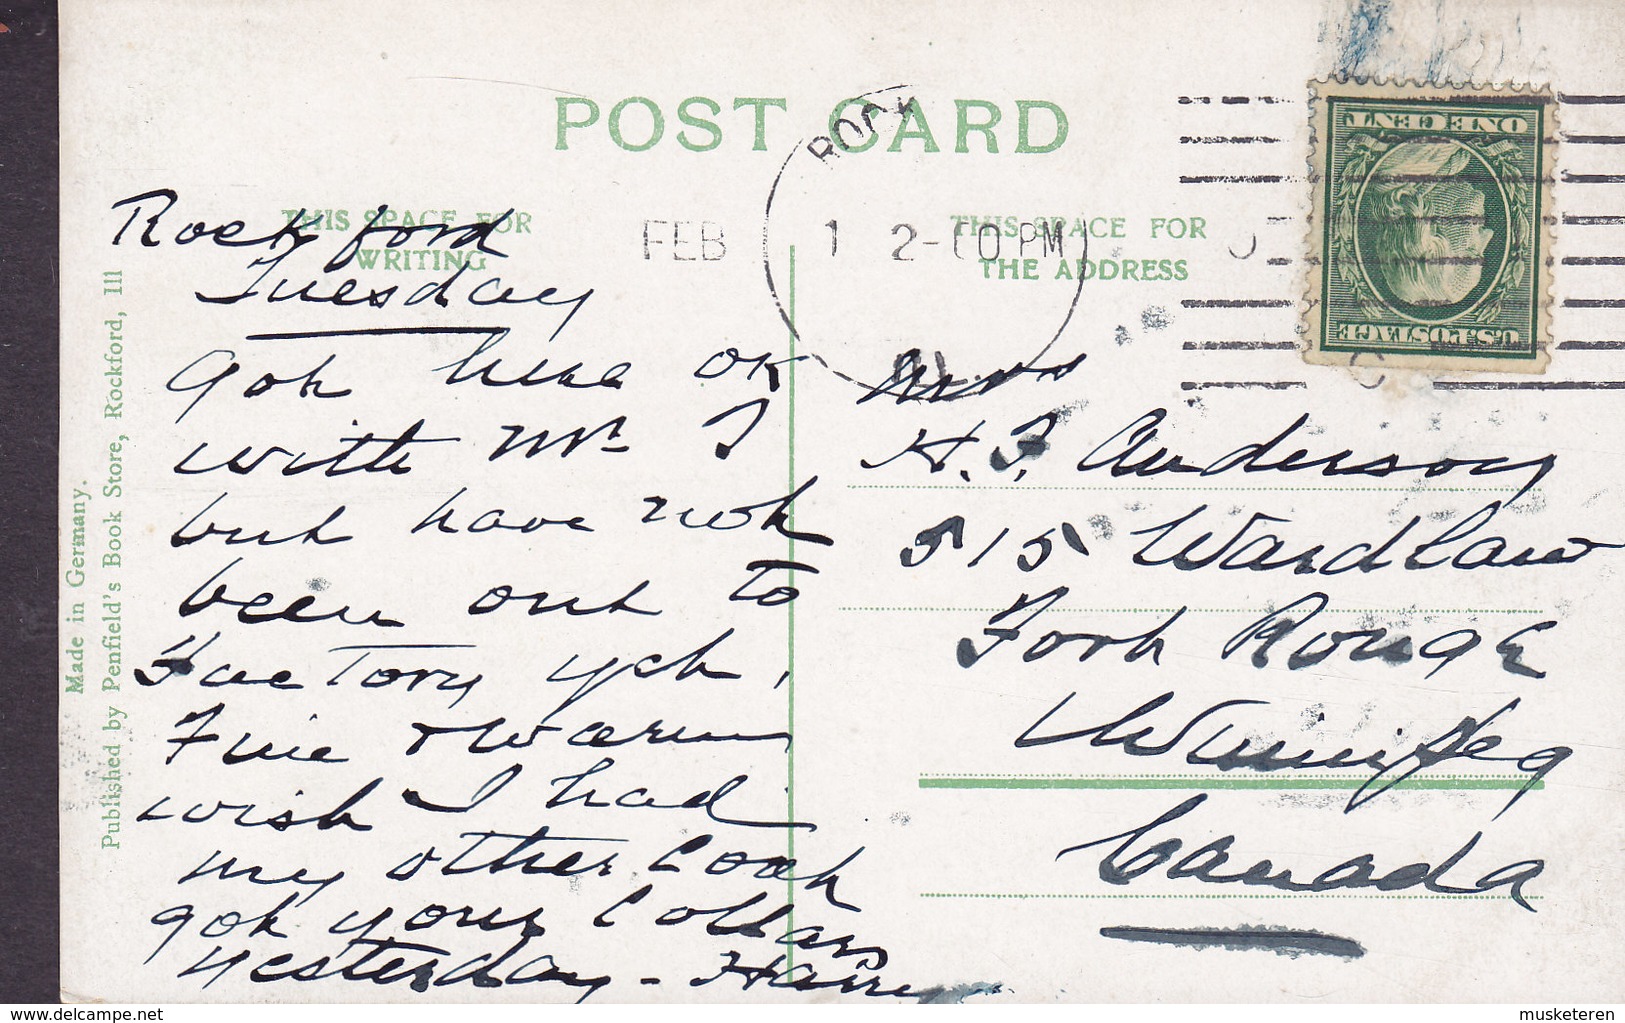 POST CARD
THIS SPACE FOR
WRITING
THIS SPACE FOR
THE ADDRESS
ROCK
FEB 1 2-00 PM
ONE CENT
U.S. POSTAGE
Made in Germany.
Published by Penfield's Book Store, Rockford, Ill
Rockford
Tuesday
Got here OK
with Mr T
but have not
been out to
Factory yet,
Fine & warm
wish I had
my other coat
got your collars
yesterday - Harry
Mrs
H. F. Anderson
515 Wardlaw
Fort Rouge
Winnipeg
Canada
www.delcampe.net
musketeren